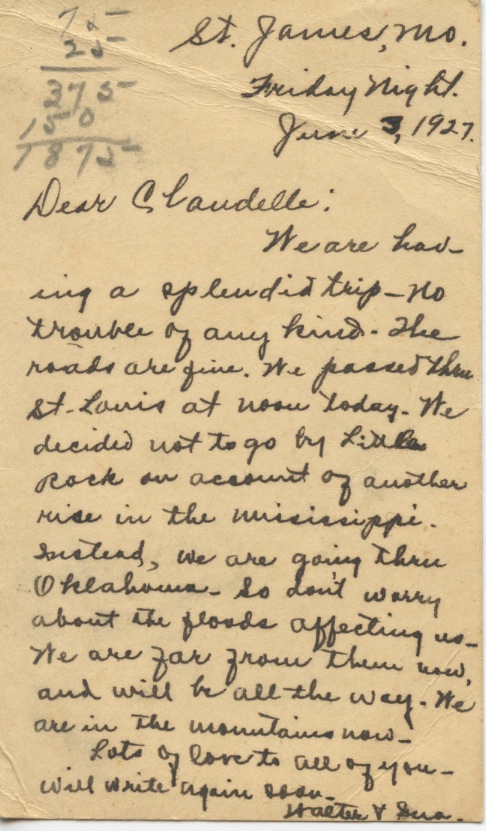 75
25
375
150
1875
St. James, Mo.
Friday Night.
June 3, 1927.
Dear Claudelle:
We are hav-
ing a splendid trip - no
trouble of any kind - The
roads are fine. We passed thru
St. Louis at noon today - We
decided not to go by Little
Rock on account of another
rise in the Mississippi.
Instead, we are going thru
Oklahoma - So don't worry
about the floods affecting us -
We are far from them now,
and will be all the way - We
are in the mountains now -
Lots of love to all of you -
Will write again soon -
Walter &